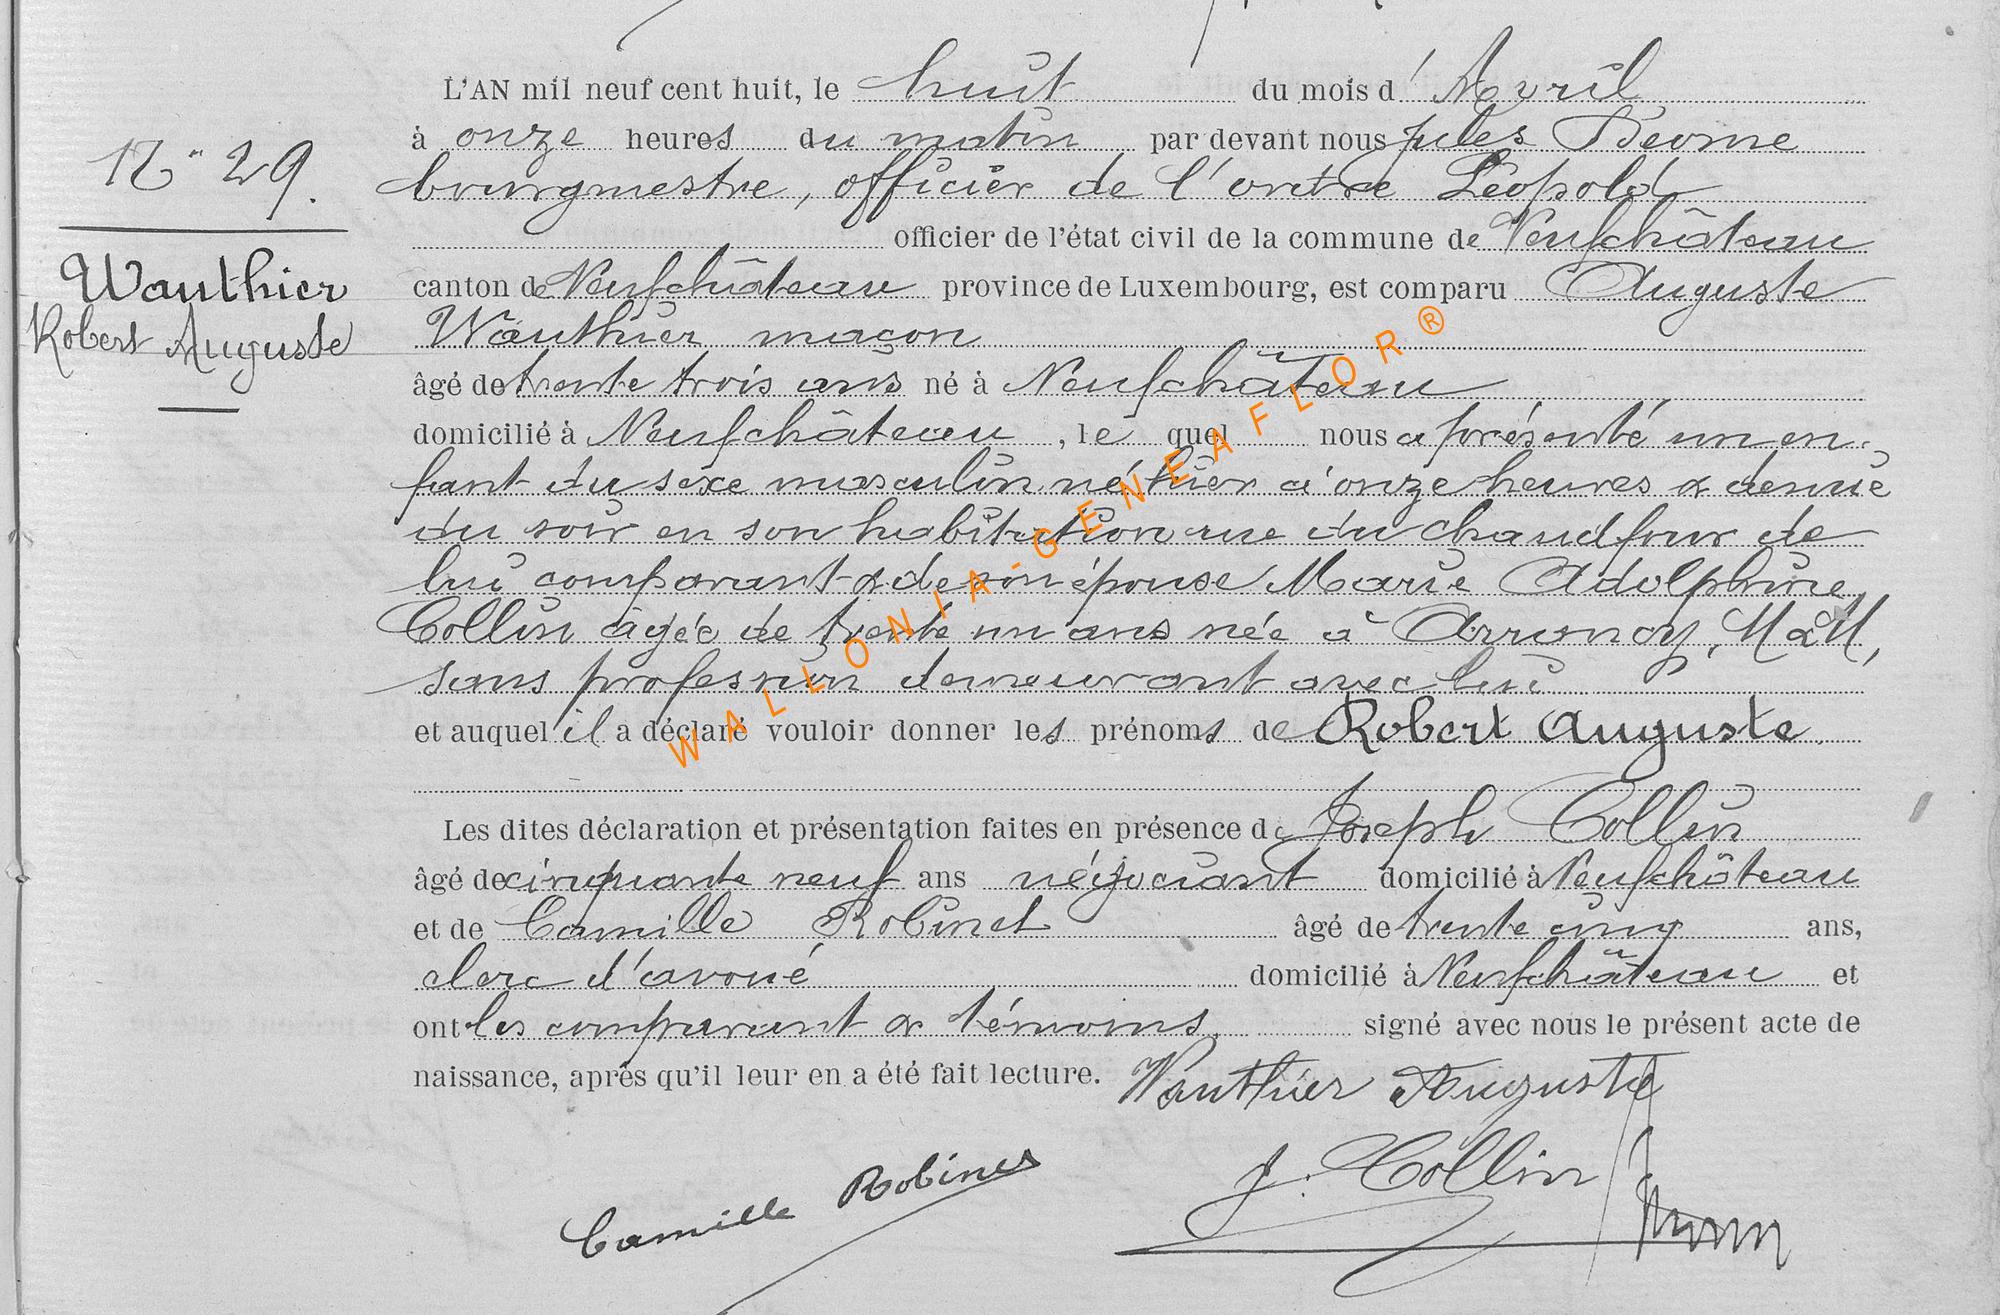 L'AN mil neuf cent huit, le huit du mois d'Avril
à onze heures du matin par devant nous Jules
bourgmestre, officier de l'ordre Léopold
officier de l'état civil de la commune de Neufchâteau
canton de Neufchâteau province de Luxembourg, est comparu Auguste
Wauthier maçon
âgé de trente trois ans né à Neufchâteau
domicilié à Neufchâteau, le quel nous a présenté un en-
fant du sexe masculin né hier à onze heures & demie
du soir en son habitation rue du chaudfour de
lui comparant & de son épouse Marie Adolphine
Collin âgée de trente un ans née à M & M,
sans profession demeurant avec lui
et auquel il a déclaré vouloir donner les prénoms de Robert Auguste.
Les dites déclaration et présentation faites en présence de Joseph Collin
âgé de cinquante neuf ans négociant domicilié à Neufchâteau
et de Camille Robinet âgé de trente cinq ans,
clerc d'avoué domicilié à Neufchâteau et
ont les comparant & témoins, signé avec nous le présent acte de
naissance, après qu'il leur en a été fait lecture.
Wauthier Auguste
J. Collin
Camille Robinet
N° 29.
Wauthier
Robert Auguste
WALLONIA-GENEAFLOR®